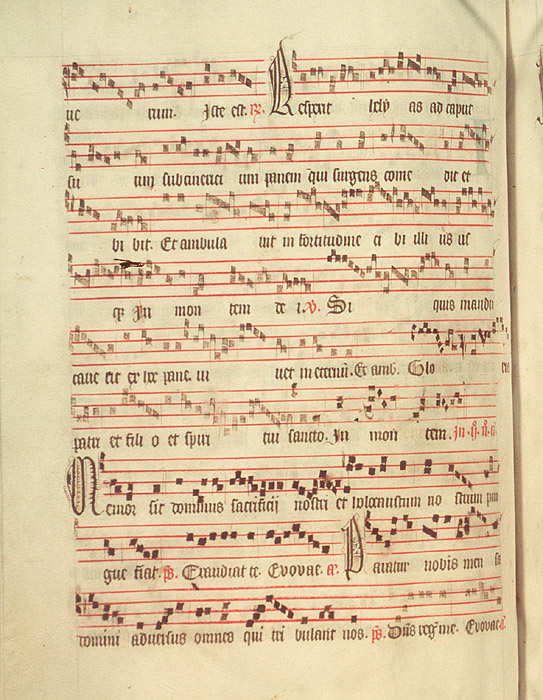 ue tum. Iste est. R. Respexit hely as ad caput
su um subcineri cium panem qui surgens come dit et
bi bit. Et ambula uit in fortitudine ci bi illi us us
qz In mon tem de i. V. Si quis mandu
cauerit ex hoc pane. ui uet in eternum. Et amb. Glo
patri et fili o et spiri tui sancto. In mon tem.
Memor sit dominus sacrificij nostri et holocaustum no strum pin
gue fiat. ps. Exaudiat te. Evovae. a. Paratur nobis men sa
domini aduersus omnes qui tri bulant nos. ps. Dns reg me. Evovae